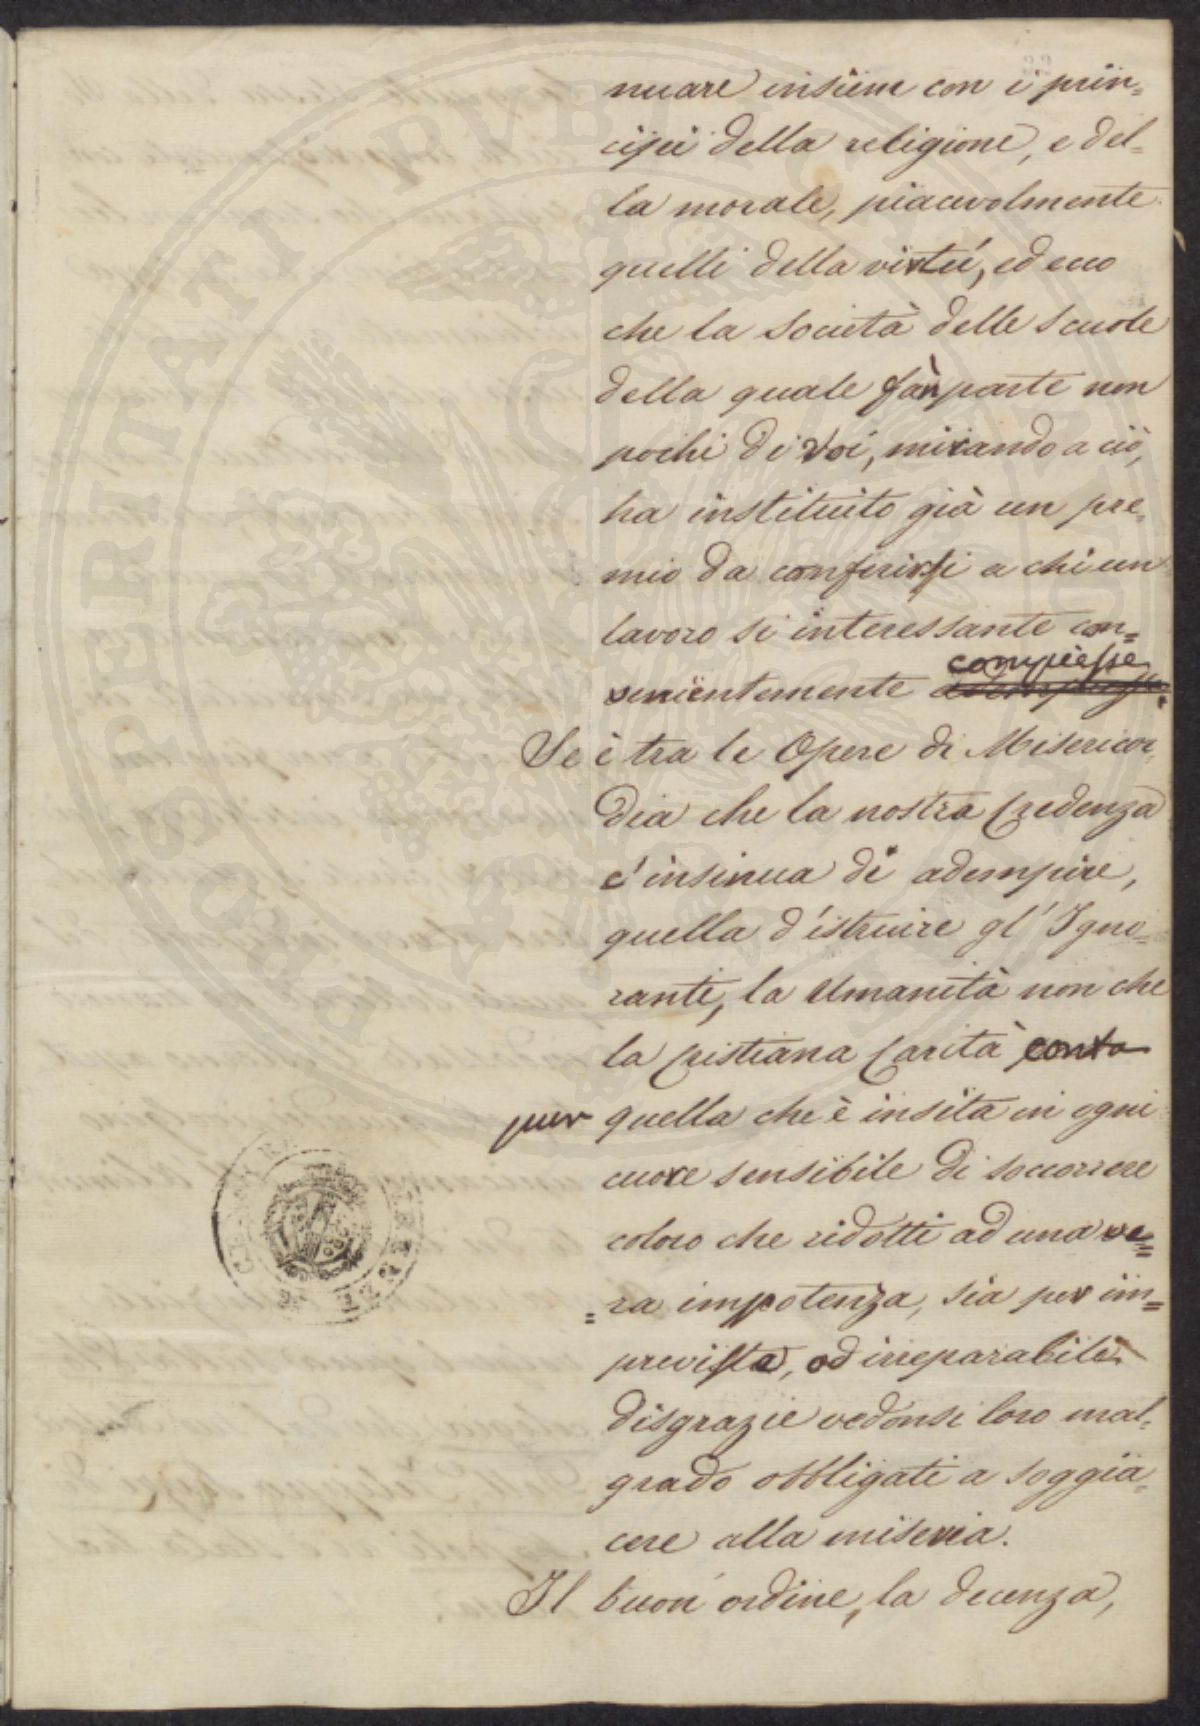 nuare insiem con i prin=
cipii della religione, e del=
la morale, piacevolmente
quelli della virtú, ed ecco
che la Società delle Scuole
della quale fàn parte non
pochi di Voi, mirando a ciò,
ha instituito già un pre=
mio da conferirsi a chi un
lavoro si interessante con=
compiesse
venientemente
Se è tra le Opere di Misericor=
dia che la nostra Credenza
c'insinua di adempire,
quella d'istruire gl'Igno=
ranti, la Umanità non che
la Cristiana Carità conta
pur quella che è insita in ogni
cuore sensibile di soccorrere
coloro che ridotti ad una ve=
=ra impotenza, sia per im=
previste, od irreparabili
disgrazie vedonsi loro mal=
grado obbligati a soggia=
cere alla miseria.
Il buon ordine, la decenza,
PROSPERITATI PVBLICAE